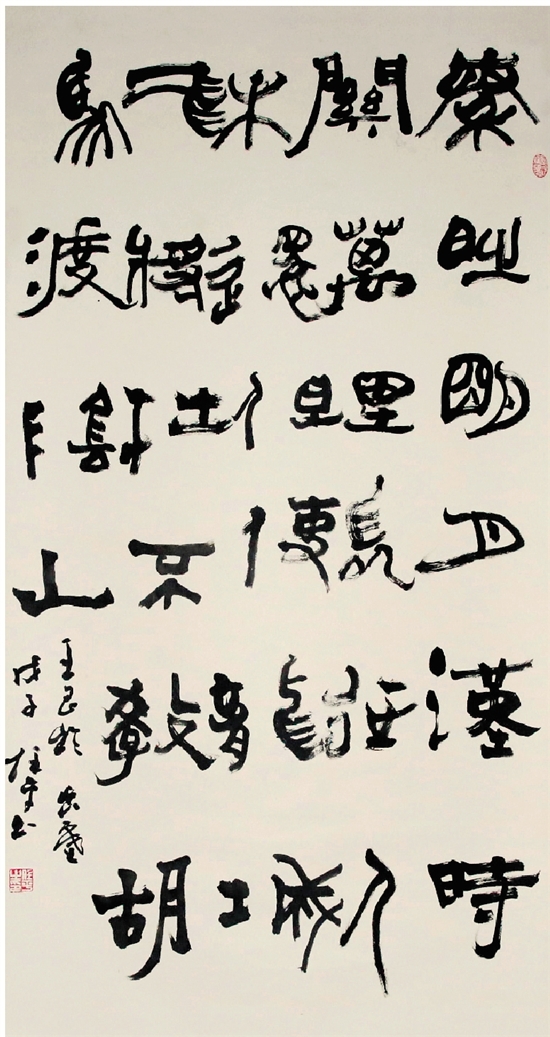 秦時明月漢時
關萬里長征人
未還但使龍城
飛將在不教胡
馬渡陰山
王昌齡 出塞
戊子 書